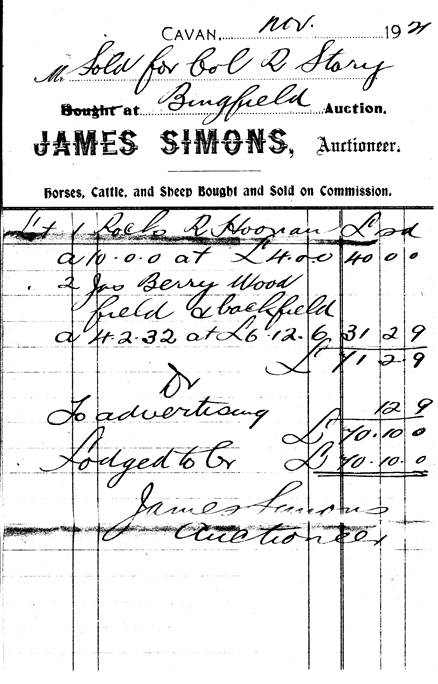 CAVAN, Nov. 1921
M Sold for Col R Story
Bought at Bingfield Auction.
JAMES SIMONS, Auctioneer.
Horses, Cattle, and Sheep Bought and Sold on Commission.
Lot 1 Rocks R Hoonan £ s d
a 10.0.0 at £4.00 40 0 0
2 Jas Berry Wood
field & backfield
a 4.2.32 at £6.12.6 31 2 9
£ 71 2.9
Dr
To advertising 12 9
£ 70.10 0
Lodged to Cr £ 70.10.0
James Simons
Auctioneer